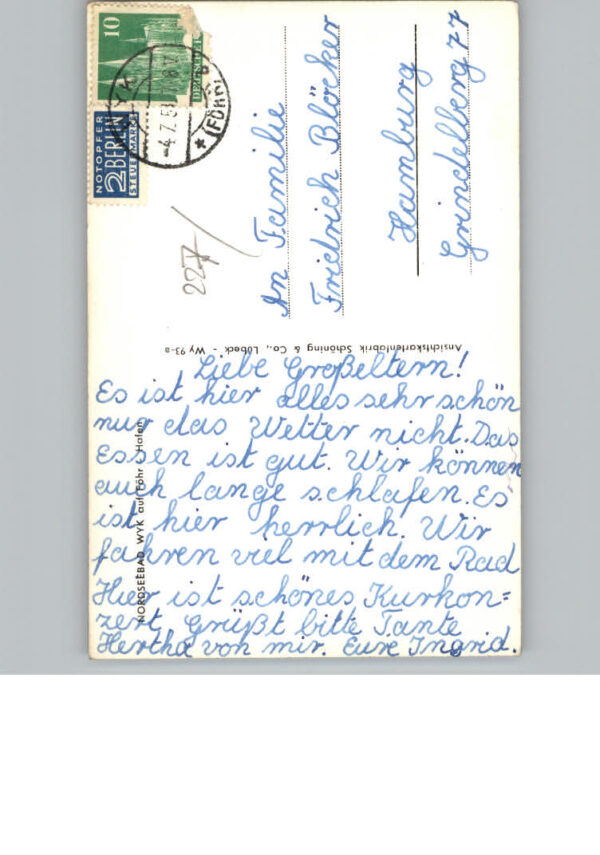 10
DEUTSCHE
NOTOPFER
2 BERLIN
STEUERMARKE
-4.7.5
(FÖHR)
227/
An Familie
Friedrich Blöcker
Hamburg
Grindelberg 77
Ansichtskartenfabrik Schöning & Co., Lübeck - Wy 93-a
NORDSEEBAD WYK auf Föhr Hafen
Liebe Großeltern!
Es ist hier alles sehr schön
nur das Wetter nicht. Das
Essen ist gut. Wir können
auch lange schlafen. Es
ist hier herrlich. Wir
fahren viel mit dem Rad
Hier ist schönes Kurkon=
zert. Grüßt bitte Tante
Hertha von mir. Eure Ingrid.